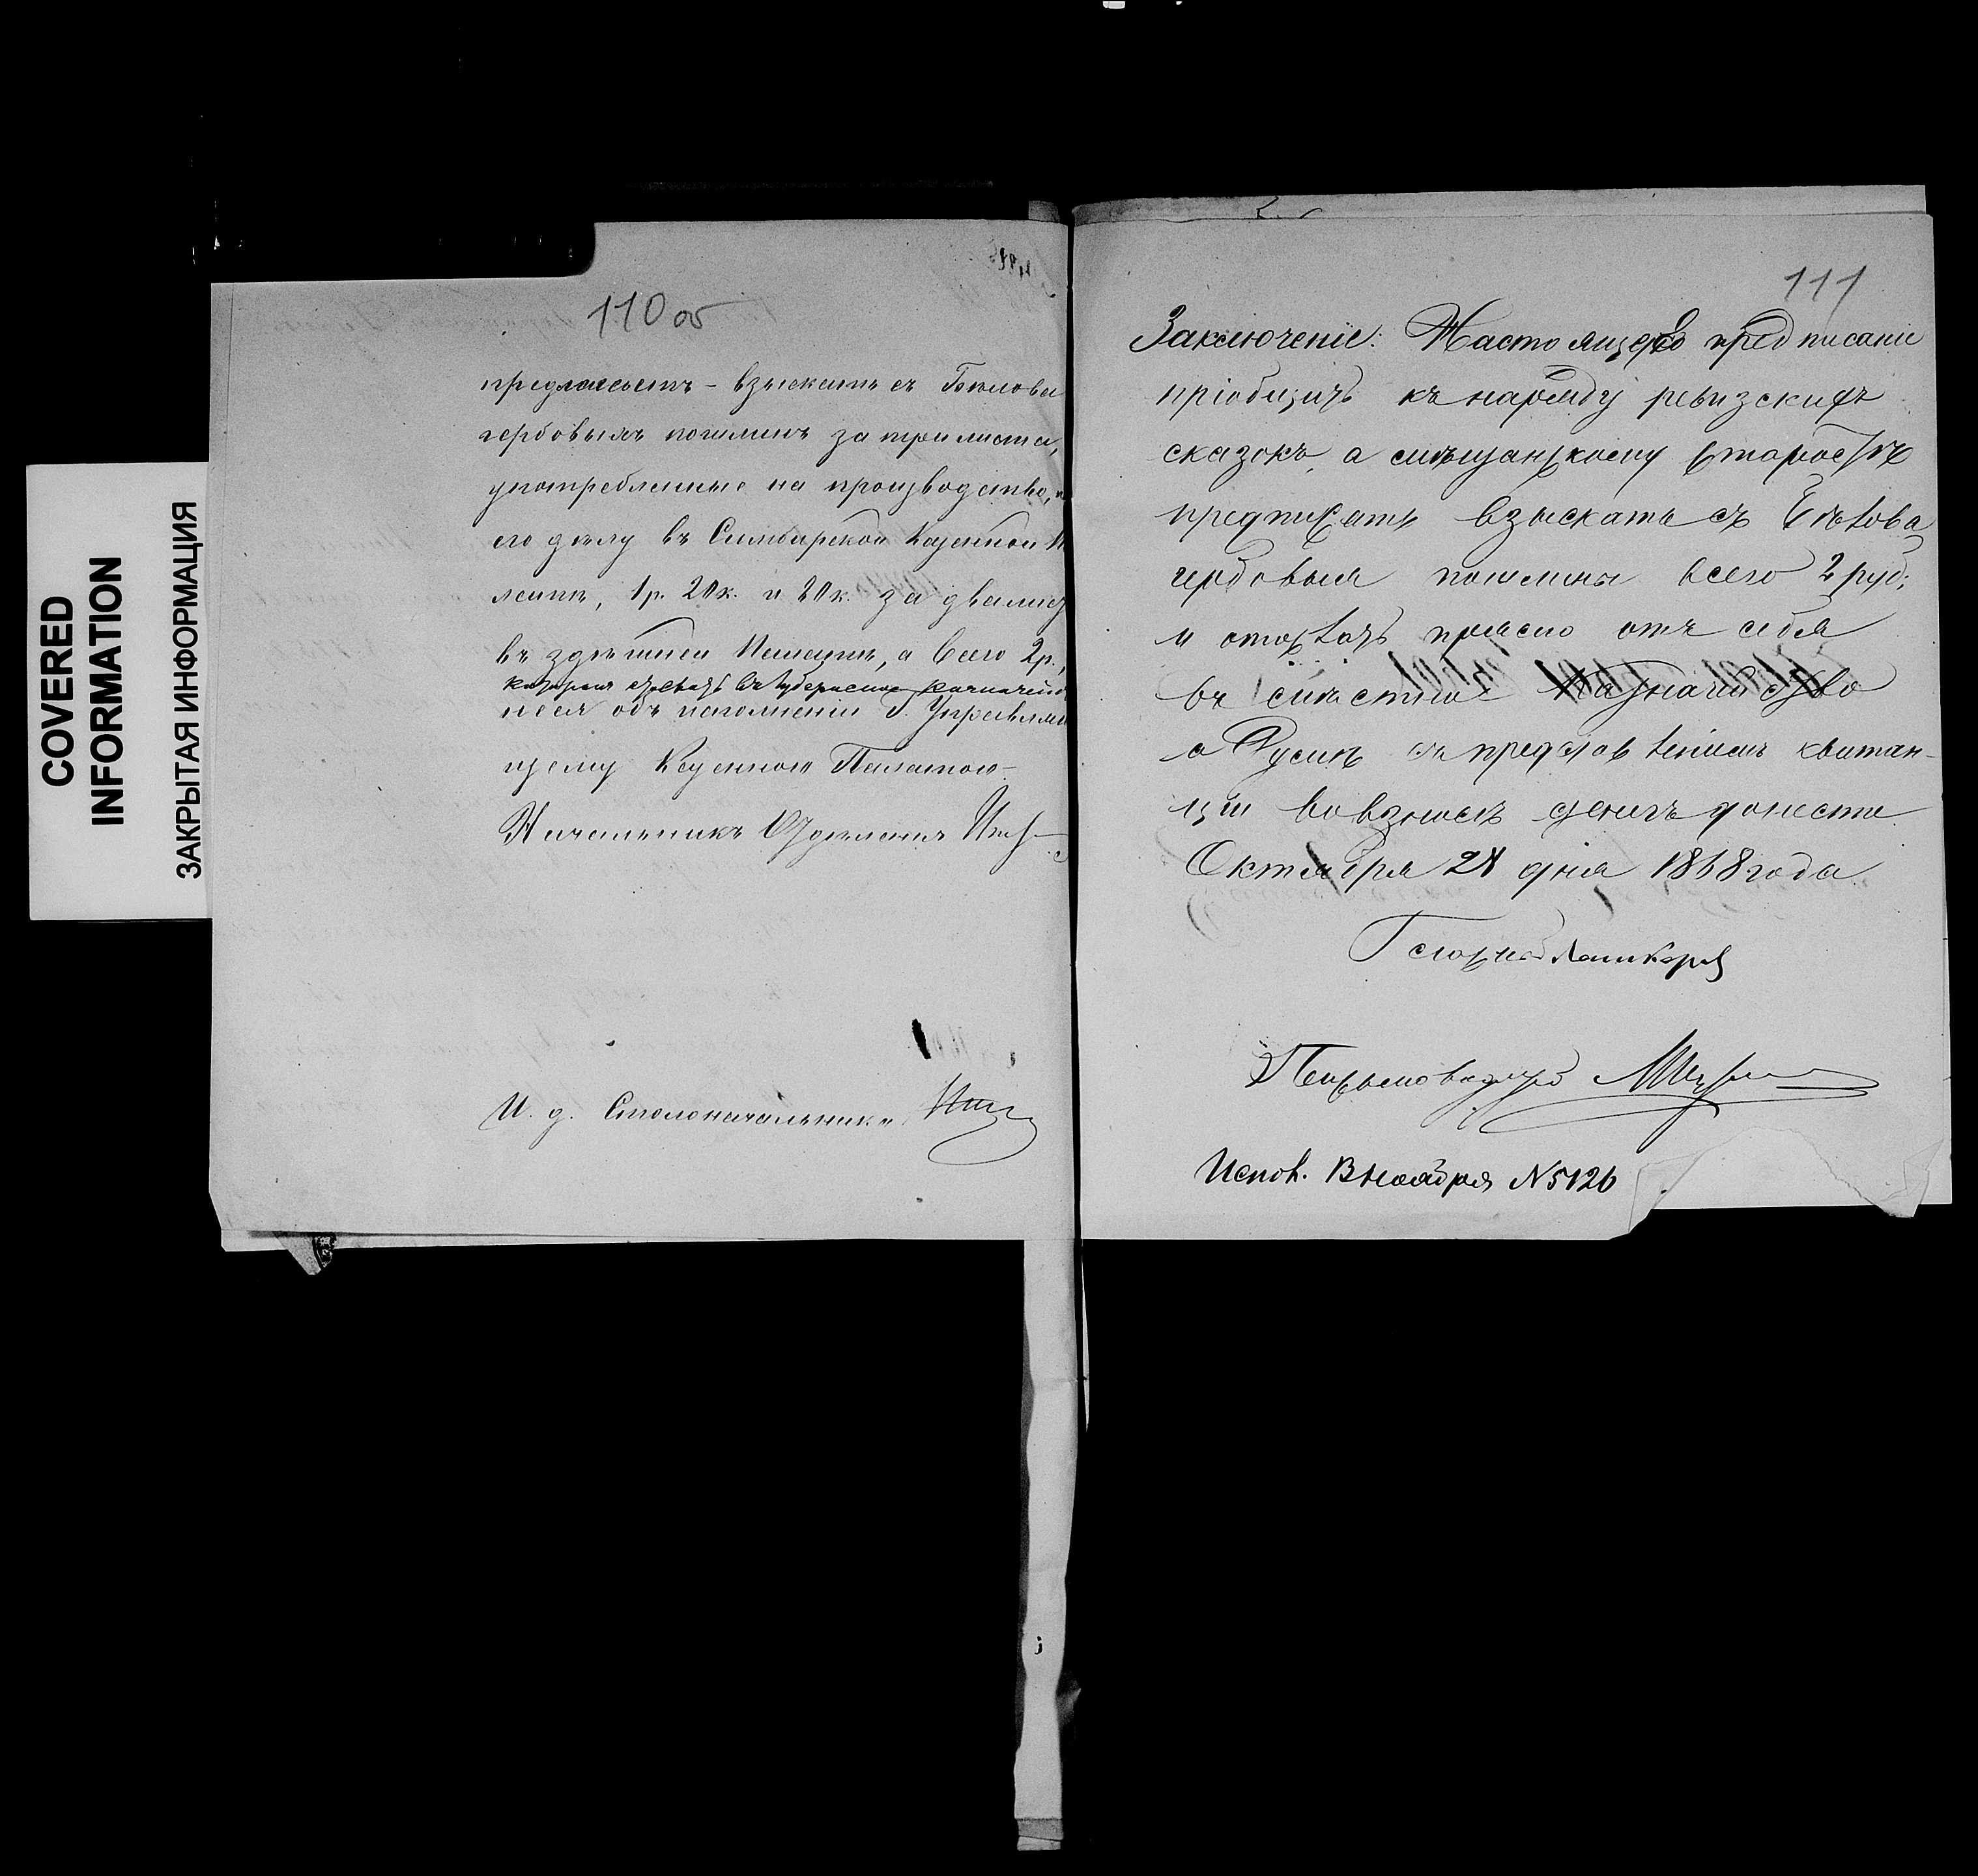 COVERED
INFORMATION
ЗАКРЫТАЯ ИНФОРМАЦИЯ
110 об
предлагаетъ - взыскать съ Бѣлова
гербовыхъ пошлинъ за три листа,
употребленные на производство, п
его дѣлу въ Симбирской Казенной П
латѣ, 1 р. 20 к. и 80 к. за два лист
въ здѣшней Палатѣ, а всего 2 р.,
которыя въ Губернское казначейс
и об исполненіи Г. Управляю
щему Казенною Палатою
Начальникъ Отдѣленія
И. д. Столоначальника
111
Заключеніе: Настоящее предписаніе
пріобщить къ наряду ревизскихъ
сказокъ, а мѣщанскому Старостѣ
предписать взыскать съ Бѣлова
гербовыя пошлины всего 2 руб;
и отослать прямо отъ себя
въ мѣстное Казначейство
а Думѣ съ представленіемъ квитан-
ціи во взносѣ денегъ донести
Октября 28 дня 1868 года
Гласный
Письмоводитель
Испол. 8 Ноября N 5126